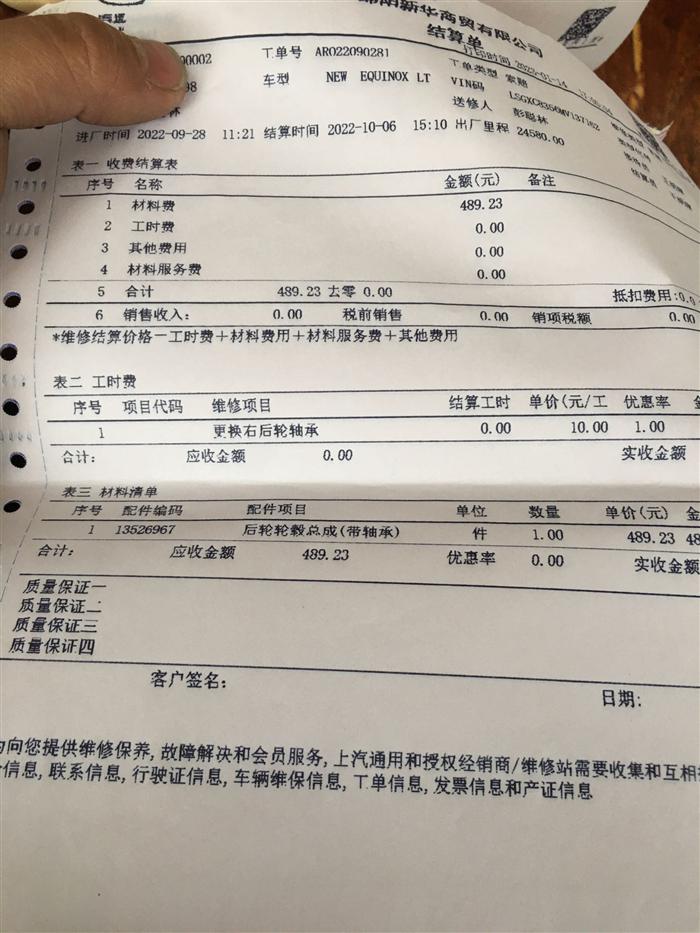 阳新华商贸有限公司
结算单
0002 工单号 ARO22090281 工单类型 索赔
98 车型 NEW EQUINOX LT VIN码
林 送修人 彭聪林
进厂时间 2022-09-28 11:21 结算时间 2022-10-06 15:10 出厂里程 24580.00
表一 收费结算表
序号 名称 金额(元) 备注
1 材料费 489.23
2 工时费 0.00
3 其他费用 0.00
4 材料服务费 0.00
5 合计 489.23 去零 0.00 抵扣费用:0.0
6 销售收入: 0.00 税前销售 0.00 销项税额 0.00
*维修结算价格一工时费+材料费用+材料服务费+其他费用
表二 工时费
序号 项目代码 维修项目 结算工时 单价(元/工 优惠率 金
1 更换右后轮轴承 0.00 10.00 1.00
合计: 应收金额 0.00 实收金额
表三 材料清单
序号 配件编码 配件项目 单位 数量 单价(元) 金
1 13526967 后轮轮毂总成(带轴承) 件 1.00 489.23 48
合计: 应收金额 489.23 优惠率 0.00 实收金额
质量保证一
质量保证二
质量保证三
质量保证四
客户签名: 日期:
向您提供维修保养,故障解决和会员服务,上汽通用和授权经销商/维修站需要收集和互相
信息,联系信息,行驶证信息,车辆维保信息,工单信息,发票信息和产证信息